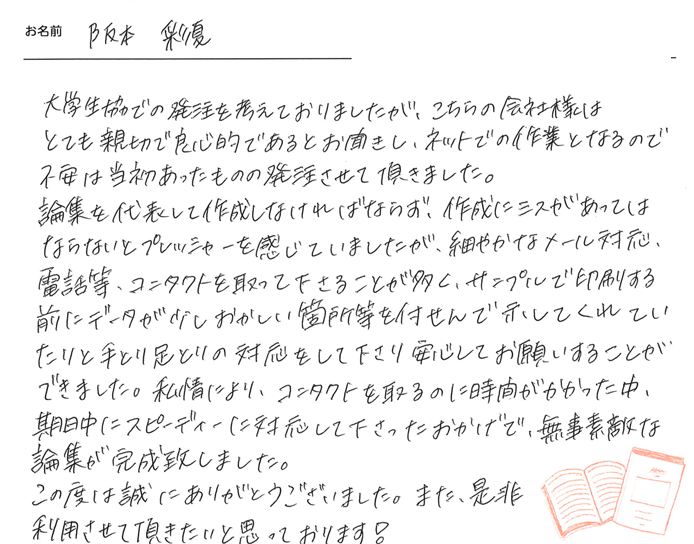 お名前 阪本 彩夏
大学生協での発注を考えておりましたが、こちらの会社様は
とても親切で良心的であるとお聞きし、ネットでの作業となるので
不安は当初あったものの発注させて頂きました。
論集を代表して作成しなければならず、作成にミスがあっては
ならないとプレッシャーを感じていましたが、細やかなメール対応、
電話等、コンタクトを取って下さることが多く、サンプルで印刷する
前にデータが少しおかしい箇所等を付せんで示してくれてい
たりと手とり足とりの対応をして下さり安心してお願いすることが
できました。私情により、コンタクトを取るのに時間がかかった中、
期日中にスピーディーに対応して下さったおかげで、無事素敵な
論集が完成致しました。
この度は誠にありがとうございました。また、是非
利用させて頂きたいと思っております!